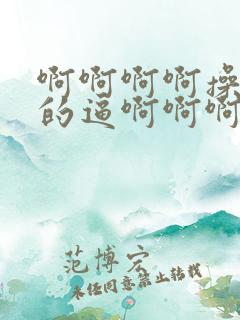 啊啊啊啊操
的逼啊啊啊
范博宏
未经同意禁止转载